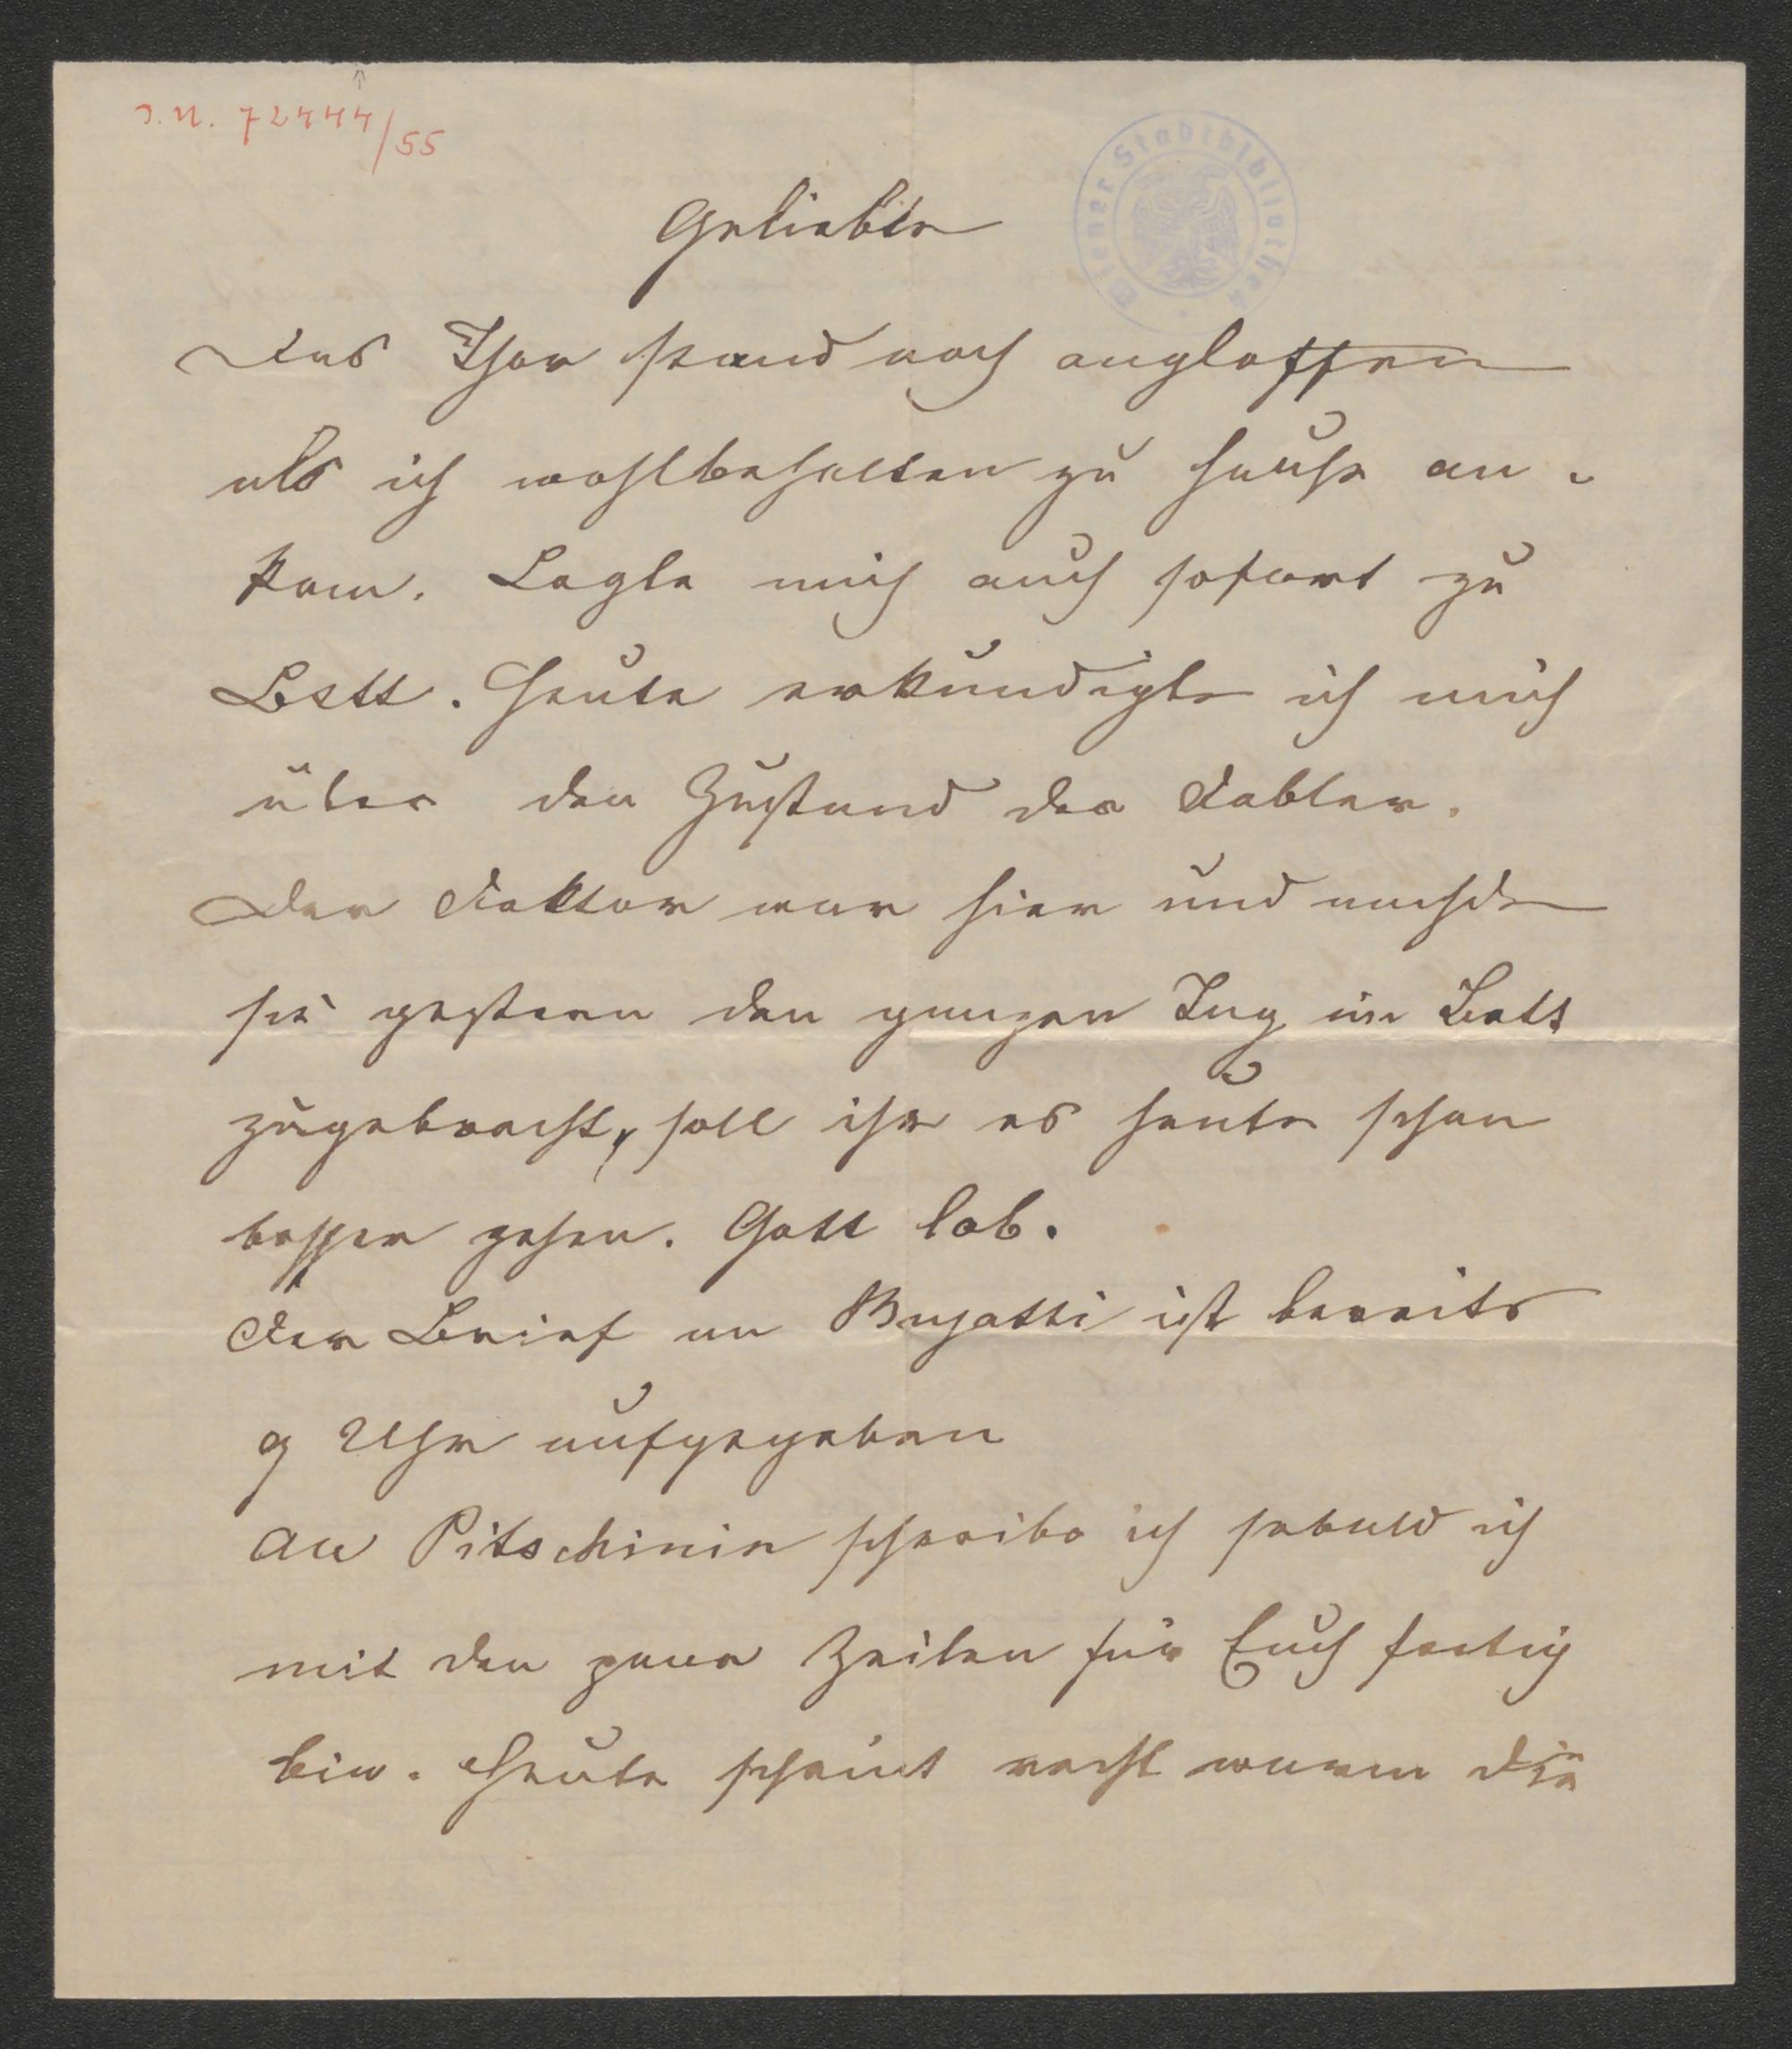 I.N. 72444/55
Wiener Stadtbibliothek
Geliebte
Das Thor stand noch angloffen
als ich wohlbehalten zu Hause an-
kam. Legte mich auch sofort zu
Bett. Heute erkundigte ich mich
über den Zustand der Dabler.
Der Doktor war hier und nachde
sie gestern den ganzen Tag im Bett
zugebracht, soll ihr es heute schon
besser gehen. Gott lob.
Der Brief an Bugatti ist bereits
9 Uhr aufgegeben
an Pitschinin schreibe ich sobald ich
mit den paar Zeilen für Euch fertig
bin. Heute scheint recht warm die